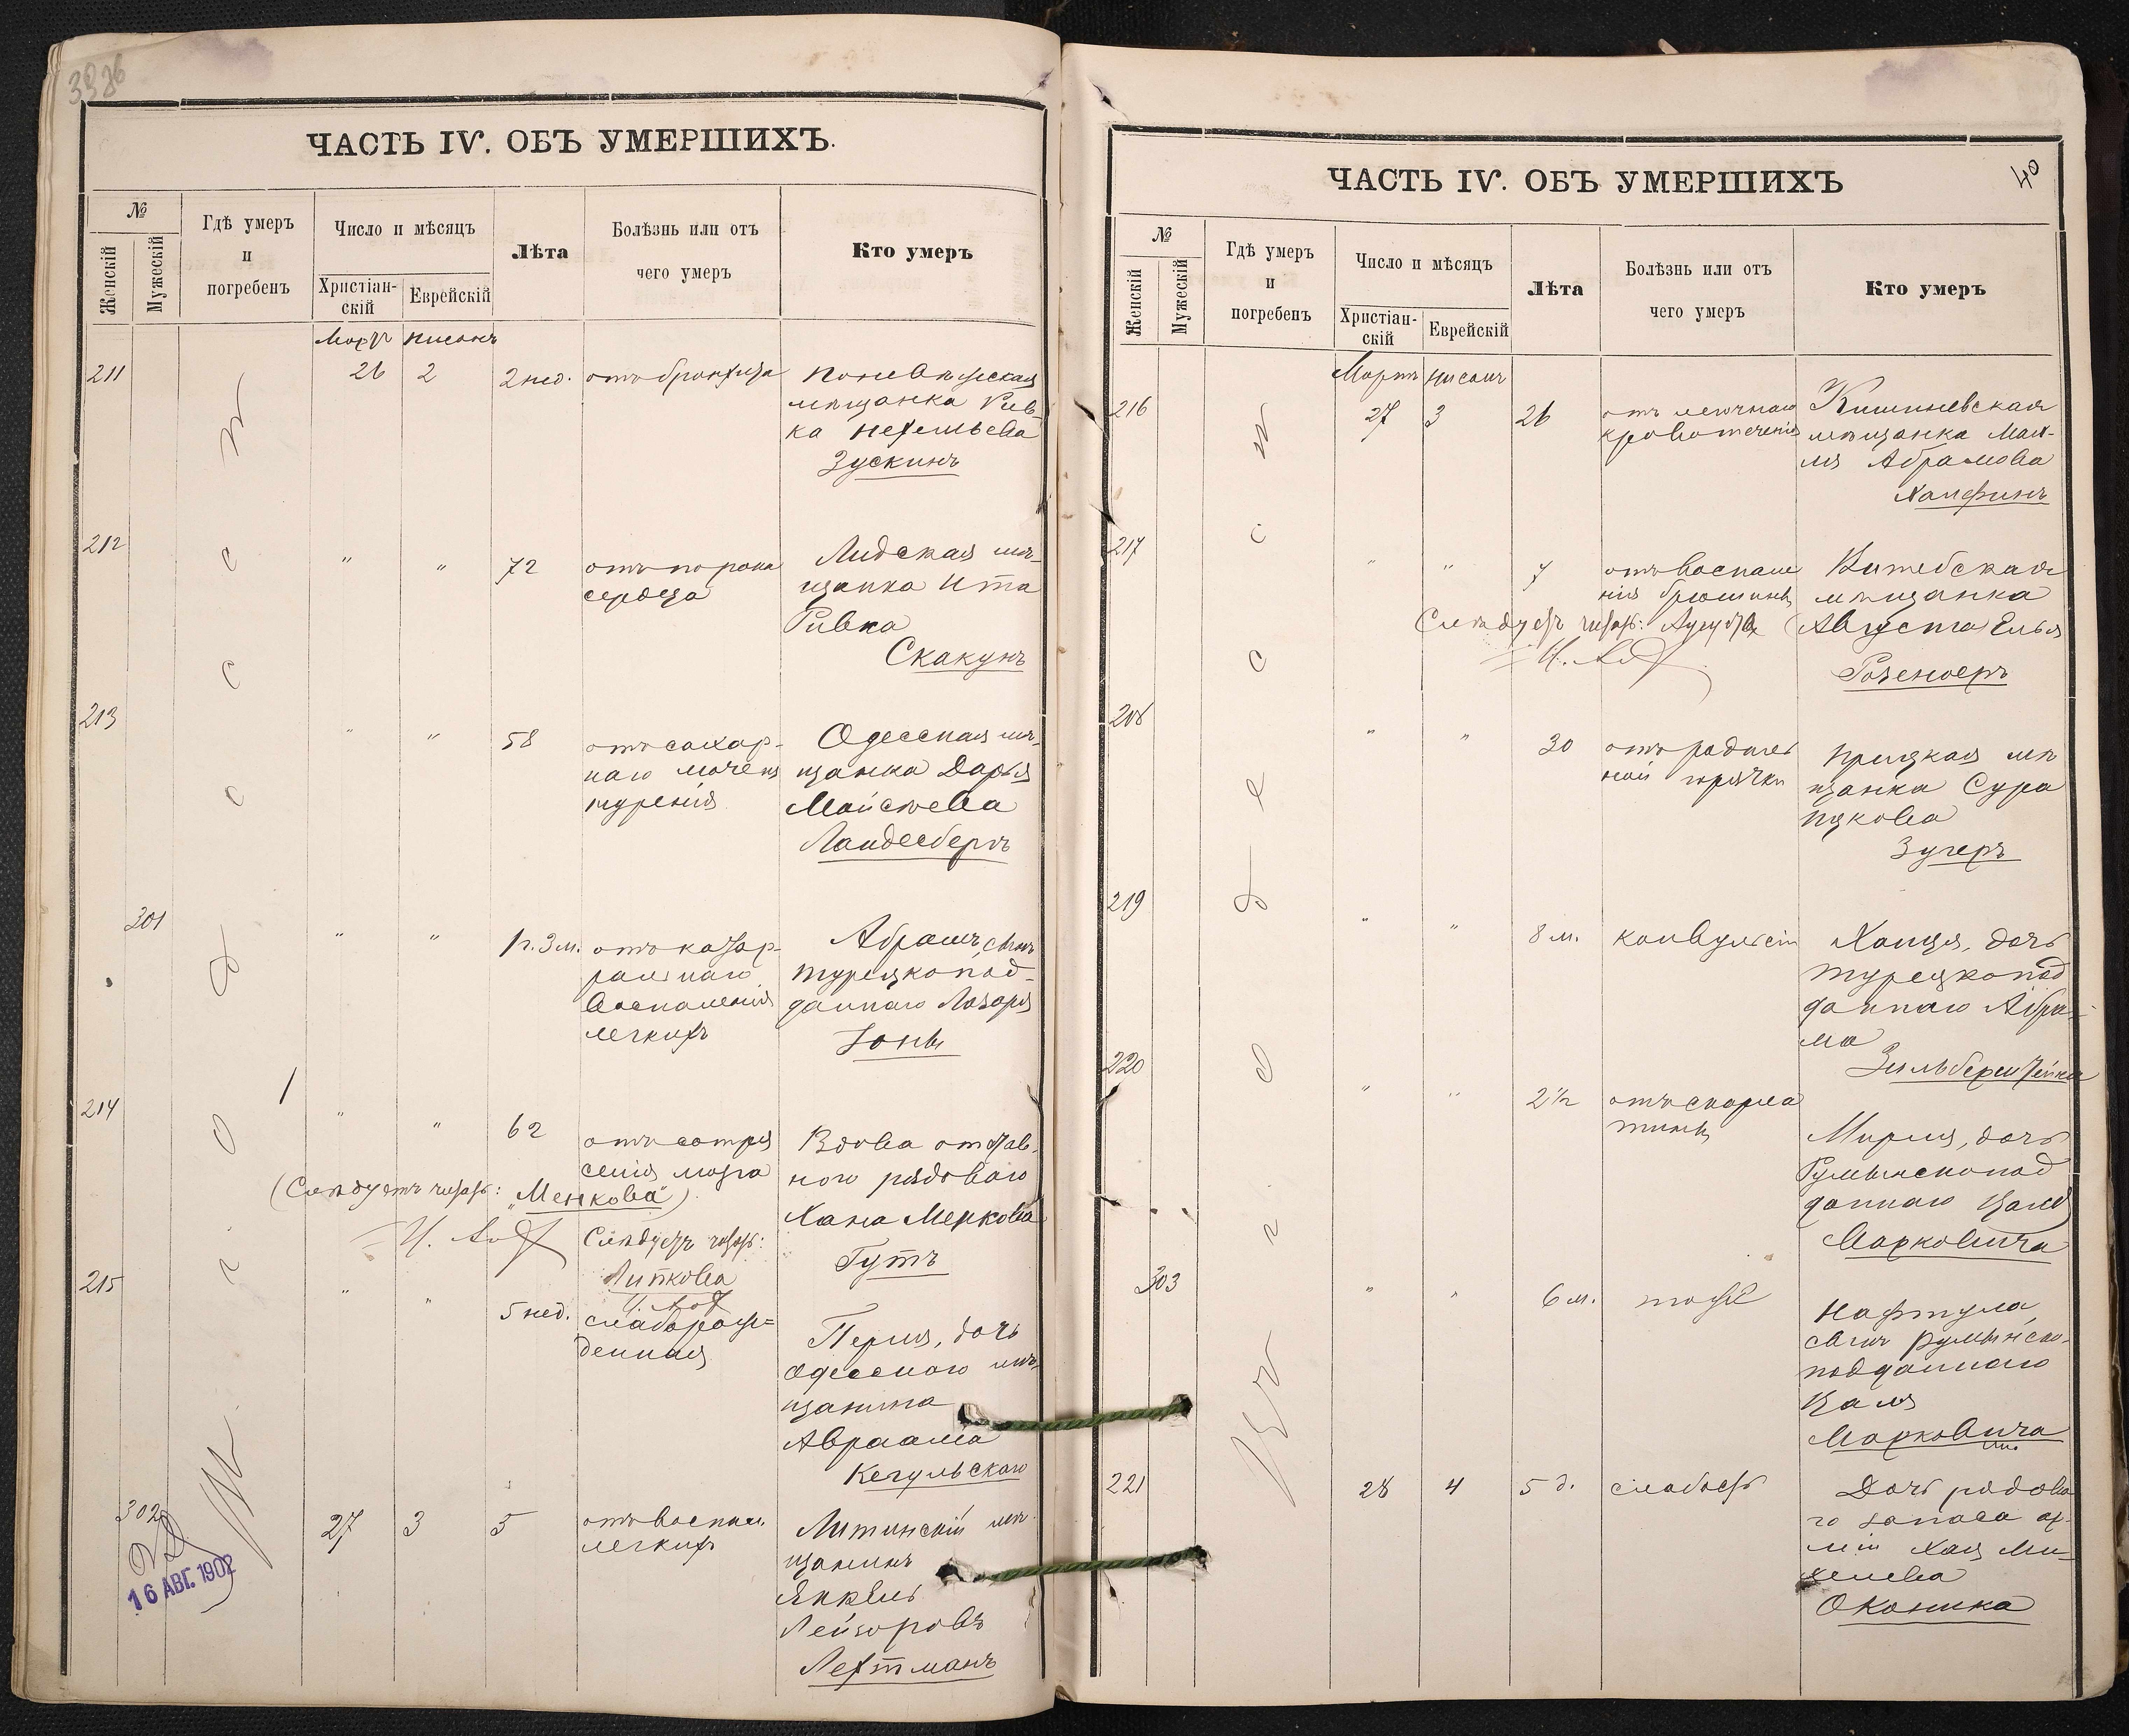 ЧАСТЬ IV. ОБЪ УМЕРШИХЪ.
№
Женскій
Мужескій
Гдѣ умеръ
и
погребенъ
Число и мѣсяцъ
Христіан-
скій
Еврейскій
Лѣта
Болѣзнь или отъ
чего умеръ
Кто умеръ
Мартъ Нисанъ
211 26 2 2 нед. отъ бронхита
Поневѣжская
мѣщанка Рив-
ка
Зускинъ
212 " " 72 отъ порока
сердца
Лидская мѣ-
щанка Ита
Ривка
Скакунъ
213 " " 58 отъ сахар-
наго мочеиз
нуренія
Одесская мѣ-
щанка Дарья
Мойсѣева
Ландесбергъ
301 " " 1 г. 3 м. отъ катар-
ральнаго
воспаленія
легкихъ
Абрамъ, сынъ
турецкопод-
даннаго Лазаря
Іоны
214 " " 62 отъ сотря
сенія мозга
Вдова отстав-
ного рядоваго
Хана Меркова
Гутъ
(Слѣдуетъ читать: "Менкова")
Слѣдуетъ читать:
Липкова
215 " " 5 нед. слаборож=
денная
Перля, дочь
Одесскаго мѣ-
щанина
Авраама
Кегульскаго
302 27 3 5 отъ воспал.
легкихъ
Литинскій мѣ-
щанинъ
Янкель
Лейзоровъ
Лехтманъ
16 АВГ. 1902
ЧАСТЬ IV. ОБЪ УМЕРШИХЪ
40
№
Женскій
Мужескій
Гдѣ умеръ
и
погребенъ
Число и мѣсяцъ
Христіан-
скій
Еврейскій
Лѣта
Болѣзнь или отъ
чего умеръ
Кто умеръ
Мартъ Нисанъ
216 27 3 26 отъ легочнаго
кровотеченія
Кишиневская
мѣщанка Мал-
ля Абрамова
Халфинъ
217 " " 7 отъ воспале
нія брюшины
Витебская
мѣщанка
Августа Елья
Розеноеръ
Слѣдуетъ читать:
218 " " 30 отъ родиль
ной горячки
мѣ
щанка Сура
Ицкова
Зугеръ
219 " " 8 м. конвульсіи
Ханця, дочь
турецкопод
даннаго Абра-
ма
Зильберштейна
220 " " 2 1/2 отъ скарла
тины
Мирля, дочь
Румынскопод
даннаго Цаля
Марковича
303 " " 6 м. тоже
Нафтула,
сынъ румынско-
подданнаго
Цаля
Марковича
221 28 4 5 д. слабость
Дочь рядова
го запаса ар-
міи Хаи Ми-
хелева
Оконика